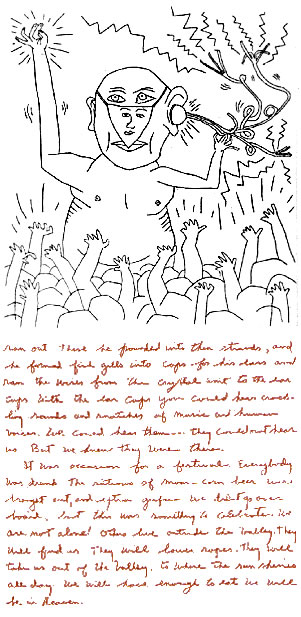 ran out There he pounded into thin strands, and
he formed fish gills into cups for his ears and
ran the wires from the crystal unit to the ear
cups With the ear cups you could hear crack-
ling sounds and snatches of music and human
voices. We could hear them — they could not hear
us But we knew they were there.
It was occasion for a festival. Everybody
was drunk The of corn beer was
brought out, and We
but this was something to celebrate. We
are not alone! Others live outside the Valley. They
will find us They will lower ropes. They will
take us out of the Valley, to where the sun shines
all day We will have enough to eat We will
be in Heaven.